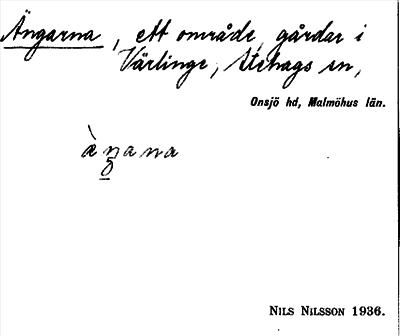 Ängarna, ett område, gårdar i
Värlinge, Stehags sn,
Onsjö hd, Malmöhus län.
NILS NILSSON 1936.